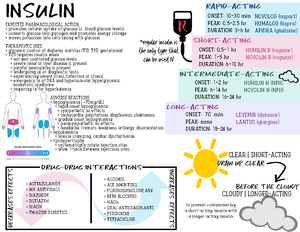 INSULIN
EXPECTED PHARMACOLOGICAL ACTION
promotes cellular uptake of glucose (↓ blood glucose levels)
converts glucose into glycogen and promotes energy storage
moves potassium into cells (along with glucose)
THERAPEUTIC USES
glycemic control of diabetes mellitus (T1D, T2D, gestational)
T2D requires insulin when
not well controlled
severe renal or liver disease is present
painful neuropathy
undergoing surgery or diagnostic tests
experiencing severe stress (infection or stress)
emergency tx of DKA and hyperosmolar hyperglycemic
requiring tx for hyperkalemia
ADVERSE REACTIONS
hypoglycemia (<70mg/dL)
rapid onset hypoglycemia
sympathetic ns effects
gradual onset hypoglycemia
headache, tremors, weakness, lethargy, disorientation
lipohypertrophy
systematically rotate injection sites
allow 1-inch between injection sites
"Regular insulin is
the only type that
can be used IV
RAPID-ACTING
ONSET 10-30 min
PEAK 0.5-2.5 HRS
DURATION 3-6 hr
NOVOLOG (aspart)
HUMALOG (lispro)
APIDRA (glulisine)
SHORT-ACTING
ONSET 0.5-1 hr
PEAK 1-5 hr
DURATION 6-10 hr
HUMULIN R (regular)
NOVOLIN R (regular)
INTERMEDIATE-ACTING
ONSET 1-2 hr
PEAK 6-14 hr
DURATION 16-24 hr
HUMULIN N (NPH)
NOVOLIN N (NPH)
LONG-ACTING
ONSET 70 min
PEAK none
DURATION 18-24 hr
LEVEMIR (detemir)
LANTUS (glargine)
CLEAR | SHORT-ACTING
DRAW UP CLEAR
BEFORE THE CLOUDY
CLOUDY | LONGER-ACTING
to prevent contaminating
a short-acting insulin with
a longer-acting insulin
DRUG-DRUG INTERACTIONS
DECREASES EFFECTS
ACETAZOLAMIDE
HIV ANTIVIRALS
DANAZOL
DILTIAZEM
NIACIN
THIAZIDE DIURETICS
INCREASES EFFECTS
ALCOHOL
ACE INHIBITORS
BETA BLOCKERS
MAOIs
ORAL ANTICOAGULANTS
PYRIDOXINE
TETRACYCLINE